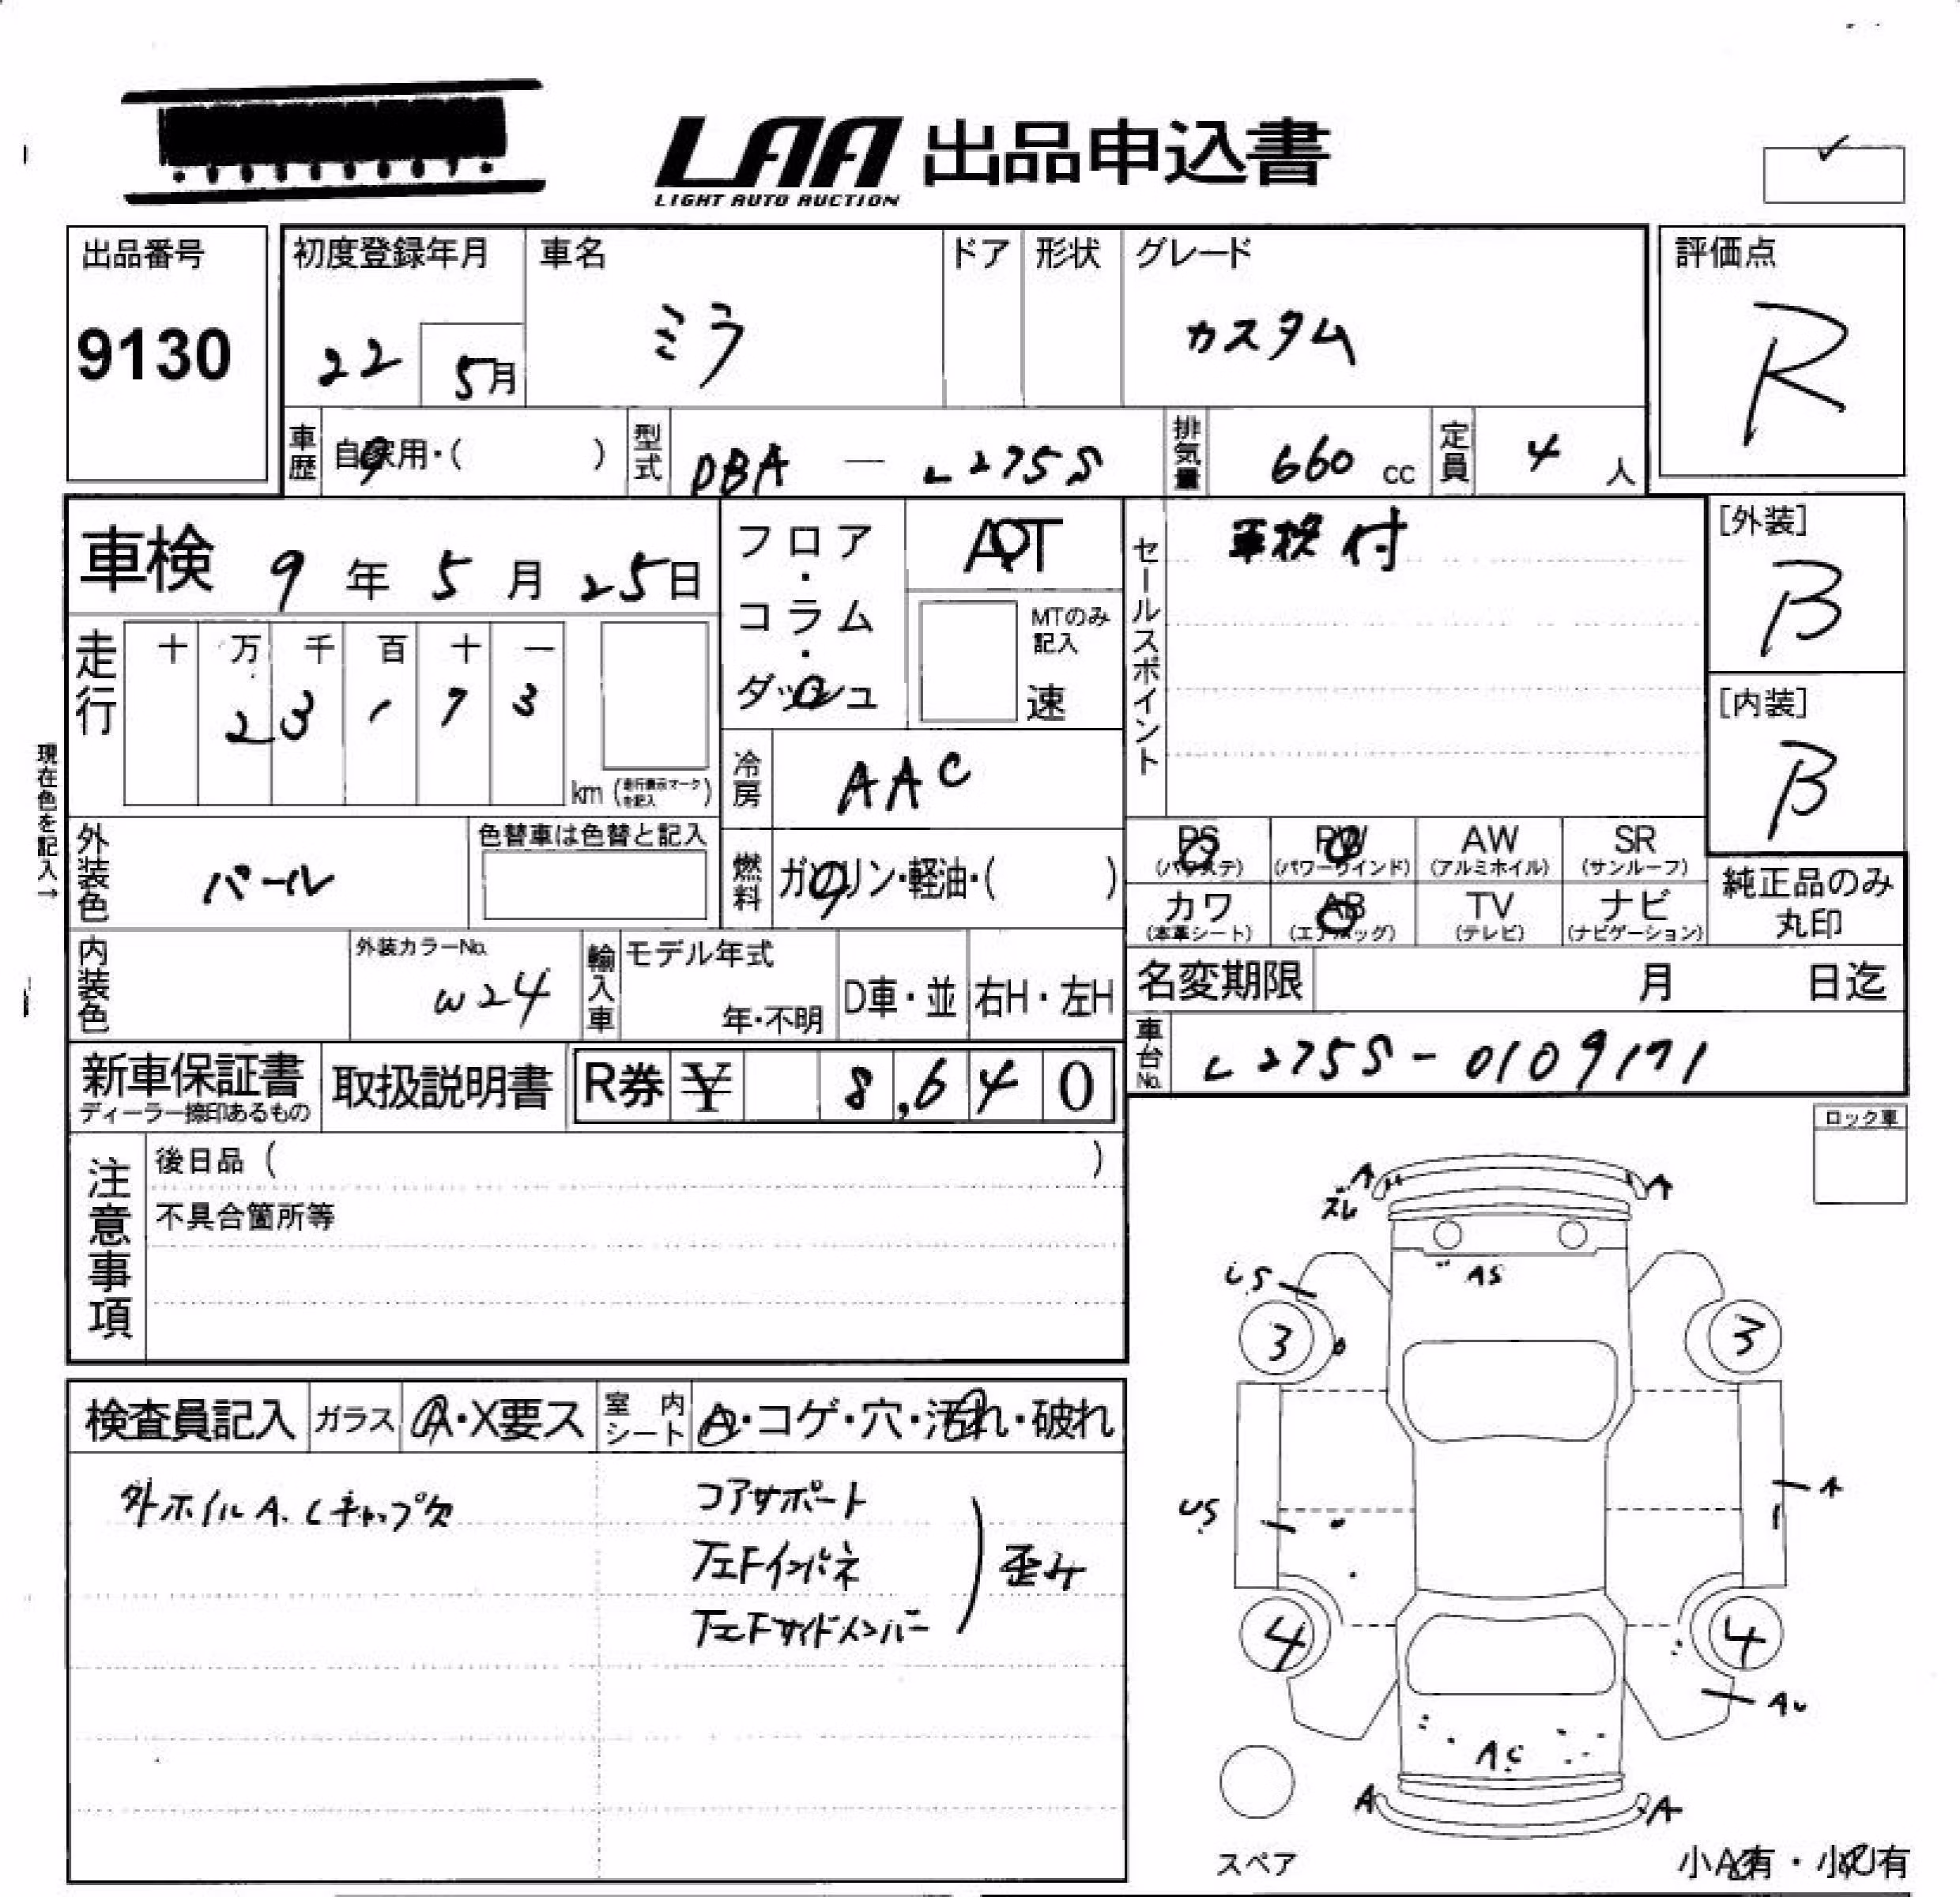 LAA 出品申込書
LIGHT AUTO AUCTION
出品番号
9130
初度登録年月
22
5月
車名
ミラ
ドア
形状
グレード
カスタム
評価点
R
車歴
自家用・( )
型式
DBA — L275S
排気量
660 cc
定員
4 人
車検 9年 5月 25日
フロア・コラム・ダッシュ
AT
MTのみ記入
速
セールスポイント
車検付
[外装]
B
[内装]
B
走行
十 万 千 百 十 一
2 3 1 7 3
km (走行表示マークを記入)
冷房
AAC
現在色を記入→
外装色
パール
色替車は色替と記入
燃料
ガソリン・軽油・( )
PS (パワステ)
PW (パワーウインド)
AW (アルミホイル)
SR (サンルーフ)
カワ (本革シート)
AB (エアバッグ)
TV (テレビ)
ナビ (ナビゲーション)
純正品のみ丸印
内装色
外装カラーNo.
W24
輸入車
モデル年式
年・不明
D車・並
右H・左H
名変期限 月 日迄
車台No.
L275S-0109171
新車保証書
ディーラー捺印あるもの
取扱説明書
R券 ¥ 8,640
ロック車
注意事項
後日品 ( )
不具合箇所等
検査員記入
ガラス
A・X要ス
室内シート
A・コゲ・穴・汚れ・破れ
外ホイルA、Cキャップ欠
コアサポート
左右Fインパネ
左右Fサイドメンバー
歪み
A
ズレ
A
US
AS
3
3
US
A
4
4
AU
AS
A
A
スペア
小A有・小U有